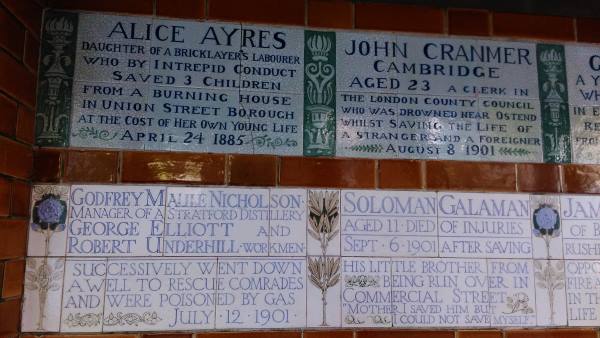 ALICE AYRES
DAUGHTER OF A BRICKLAYER'S LABOURER
WHO BY INTREPID CONDUCT
SAVED 3 CHILDREN
FROM A BURNING HOUSE
IN UNION STREET BOROUGH
AT THE COST OF HER OWN YOUNG LIFE
APRIL 24 1885
JOHN CRANMER
CAMBRIDGE
AGED 23 A CLERK IN
THE LONDON COUNTY COUNCIL
WHO WAS DROWNED NEAR OSTEND
WHILST SAVING THE LIFE OF
A STRANGER AND A FOREIGNER
AUGUST 8 1901
GODFREY MAULE NICHOLSON
MANAGER OF A STRATFORD DISTILLERY
GEORGE ELLIOTT AND
ROBERT UNDERHILL · WORKMEN
SUCCESSIVELY WENT DOWN
A WELL TO RESCUE COMRADES
AND WERE POISONED BY GAS
JULY 12 1901
SOLOMAN GALAMAN
AGED 11 · DIED OF INJURIES
SEPT 6 · 1901 AFTER SAVING
HIS LITTLE BROTHER FROM
BEING RUN OVER IN
COMMERCIAL STREET
"MOTHER I SAVED HIM BUT I
COULD NOT SAVE MYSELF"
JAM
OF B
RUSH
OPPO
FIRE
AND
IN THE